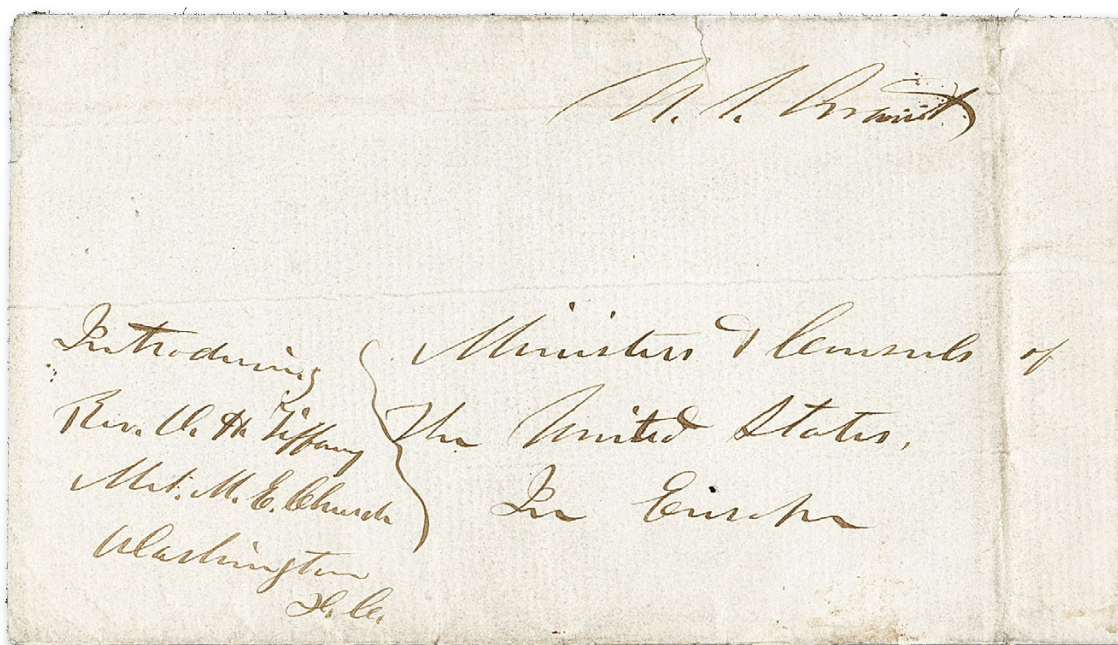 U. S. Grant
Ministers & Consuls of
The United States,
In Europe
Introducing
Rev. O. H. Tiffany
Met. M. E. Church
Washington
D. C.